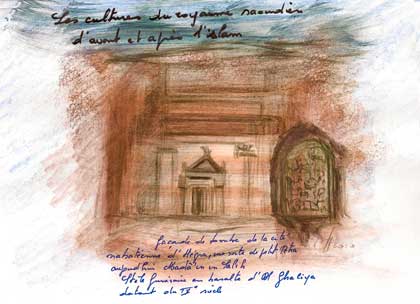 Les cultures du royaume saoudien
d'avant et après l'islam
façade de tombe de la cité
nabatéenne d'Hegra, une sorte de ptit Petra
aujourd'hui Madâ'in Salih
Stèle funéraire en basalte d'Al Ghaliya
datant du IXe siècle